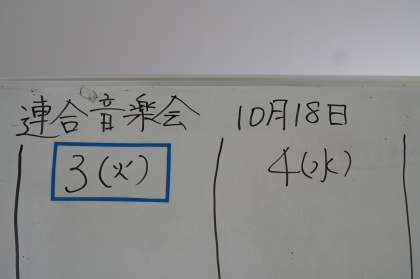 連合音楽会 10月18日
3(火) 4(水)